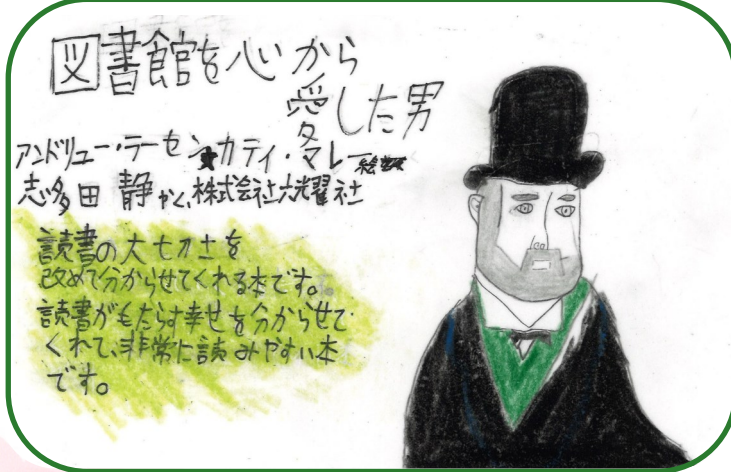 図書館を心から
愛した男
アンドリュー・ラーセン カティ・マレー絵
志多田 静 やく、株式会社六耀社
読書の大切さを
改めて分からせてくれる本です。
読書がもたらす幸せを分からせて
くれて、非常に読みやすい本
です。